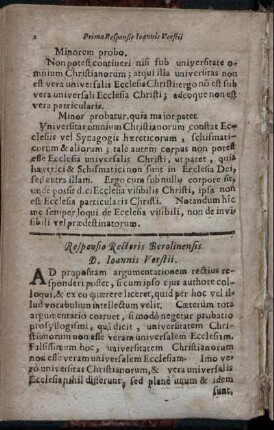 2 Prima Responsio Ioannis Vorstii
Minorem probo.
Non potest contineri nisi sub universitate o-
mnium Christianorum; atqui illa universitas non
est vera universalis Ecclesia Christi: ergo nō est sub
vera universali Ecclesia Christi; adeoque non est
vera particularis.
Minor probatur, quia major patet.
Universitas omnium Christianorum constat Ec-
clesiis vel Synagogis hæreticorum, schismati-
corum & aliorum; tale autem corpus non potest
esse Ecclesia universalis Christi, ut patet, quia
hæretici & Schismatici non sunt in Ecclesia Dei,
sed extra illam. Ergo cum sub nullo corpore sit,
unde possit dici Ecclesia visibilis Christi, ipsa non
est Ecclesia particularis Christi. Notandum hîc
me semper loqui de Ecclesia visibili, non de invi-
sibili vel prædestinatorum.
Responsio Rectoris Berolinensis
D. Ioannis Vorstii.
AD propositam argumentationem rectius re-
sponderi posset, si cum ipso ejus authore col-
loqui, & ex eo quærere liceret, quid per hoc vel il-
lud vocabulum intellectum velit. Cæterùm tota
argumentatio corruet, si modò negetur probatio
prosyllogismi, quâ dicit, universitatem Chri-
stianorum non esse veram universalem Ecclesiam.
Falsissimum hoc, universitatem Christianorum
non esse veram universalem Ecclesiam. Imo ve-
rò universitas Christianorum, & vera universalis
Ecclesia nihil differunt, sed planè unum & idem
sunt,